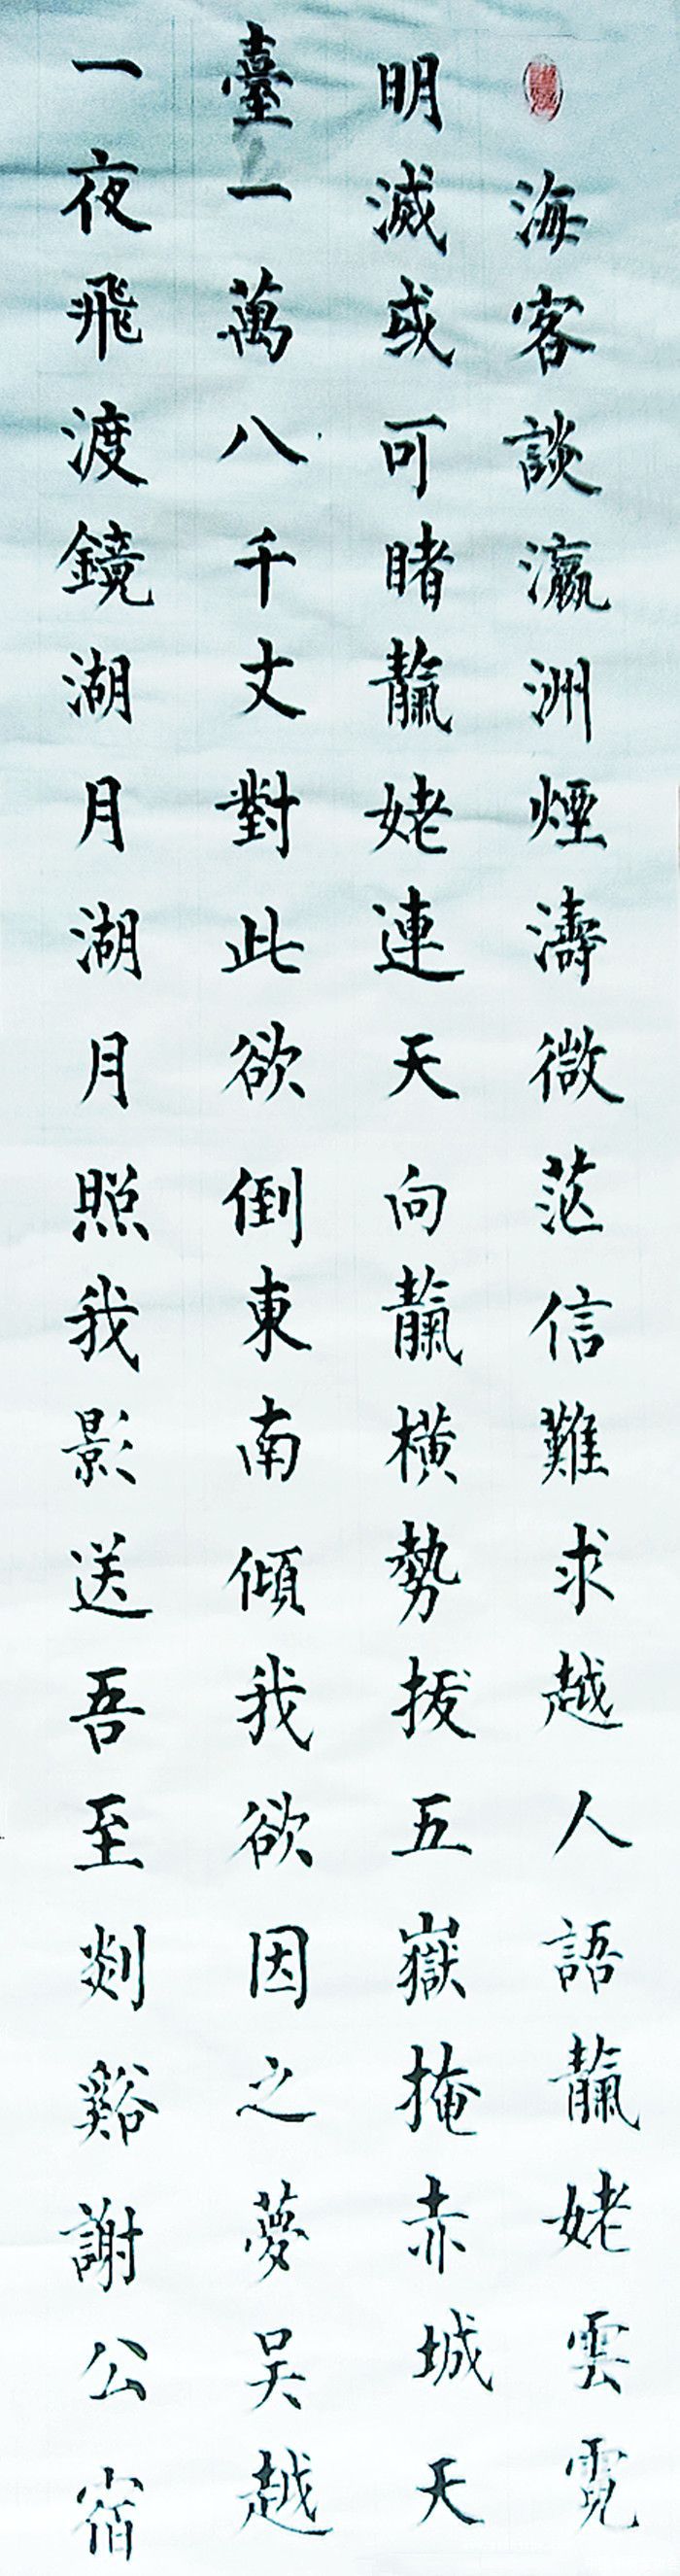 海客談瀛洲煙濤微茫信難求越人語靝姥雲霓
明滅或可睹靝姥連天向靝橫勢拔五嶽掩赤城天
臺一萬八千丈對此欲倒東南傾我欲因之夢吳越
一夜飛渡鏡湖月湖月照我影送吾至剡谿謝公宿